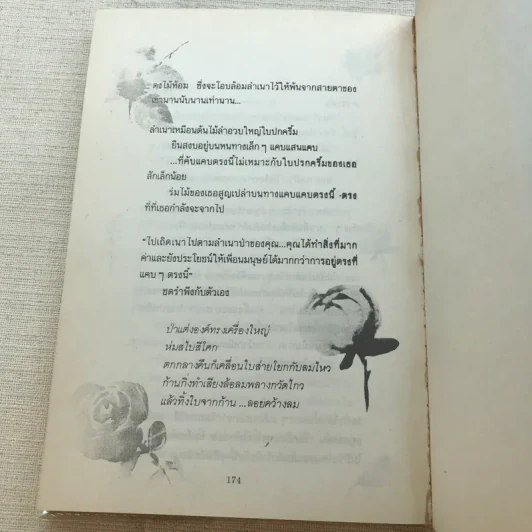 ดงไม้หอม ซึ่งจะโอบล้อมลำเนาไว้ให้พ้นจากสายตาของ
เขานานนับนานเท่านาน...
ลำเนาเหมือนต้นไม้ลำอวบใหญ่ใบปกครึ้ม
ยืนสงบอยู่บนหนทางเล็กๆ แคบแสนแคบ
...ที่คับแคบตรงนี้ไม่เหมาะกับใบปรกครึ้มของเธอ
สักเล็กน้อย
ร่มไม้ของเธอสูญเปล่าบนทางแคบแคบตรงนี้ -ตรง
ที่ที่เธอกำลังจะจากไป
"ไปเถิดเนาไปตามลำเนาป่าของคุณ...คุณได้ทำสิ่งที่มาก
ค่าและยังประโยชน์ให้เพื่อนมนุษย์ได้มากกว่าการอยู่ตรงที่
แคบๆ ตรงนี้"
ชดรำพึงกับตัวเอง
ป่าแต่งองค์ทรงเครื่องใหญ่
ห่มสไบสีโศก
ตกกลางคืนก็เคลื่อนใบส่ายโยกกับลมไหว
ก้านกิ่งทำเสียงล้อลมพลางกวัดไกว
แล้วทิ้งใบจากก้าน ...ลอยคว้างลม
174